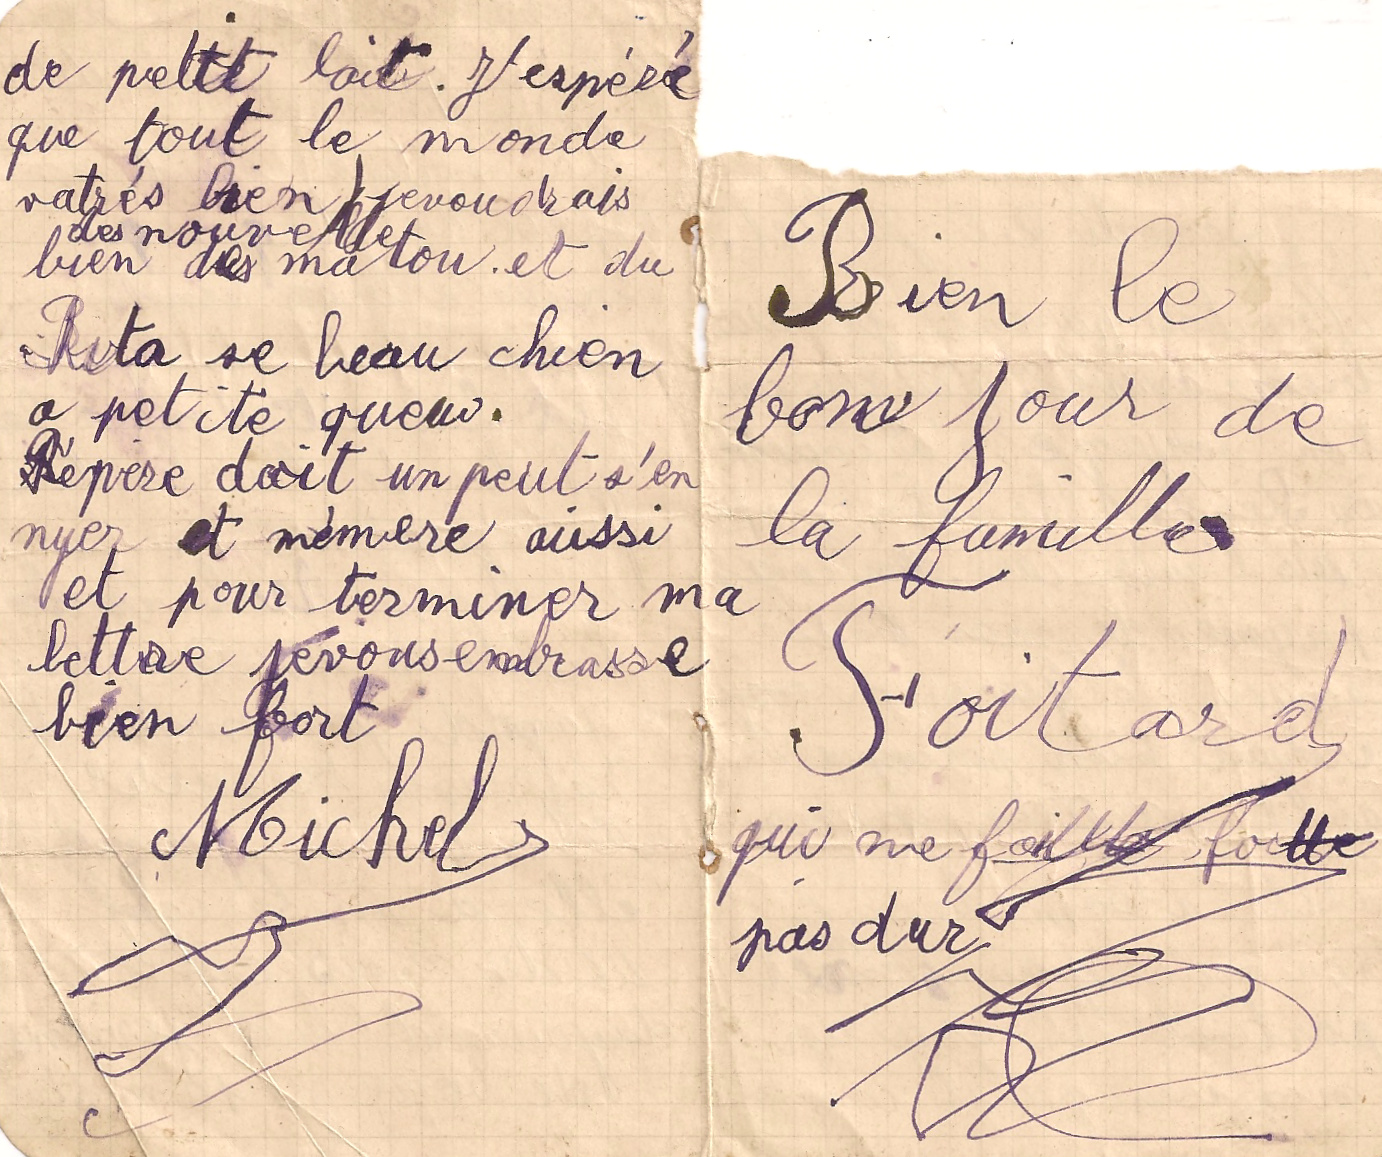 de petit lait. J'espéré
que tout le monde
vatrés bien jevoudrais
des nouvelle
bien des matou. et du
Rita se beau chien
a petite queu.
Pépère doit un peut s'en
nyer et mémere aussi
et pour terminer ma
lettre jevous embrasse
bien fort
Michel
Bien le
bon jour de
la famille
Foitard
qui me
pas dur